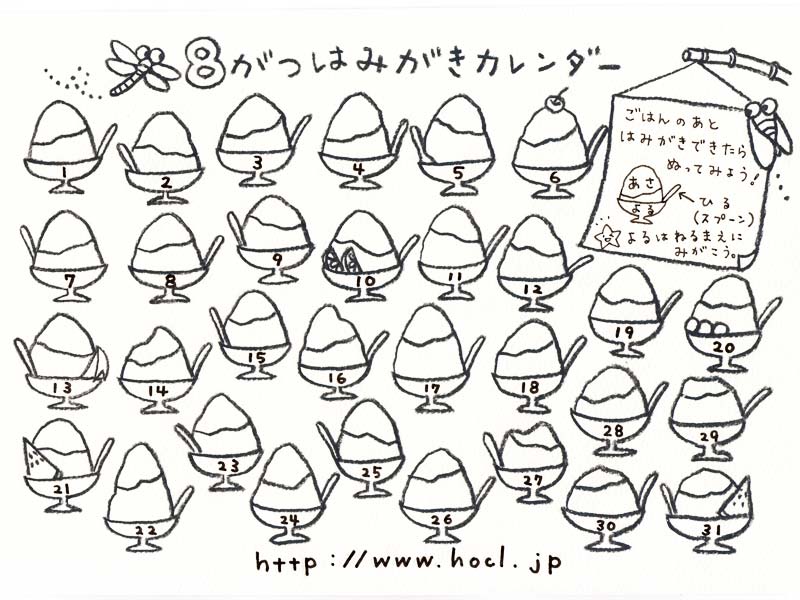 8がつはみがきカレンダー
ごはんのあと
はみがきできたら
ぬってみよう!
あさ
よる
ひる
(スプーン)
よるはねるまえに
みがこう。
1 2 3 4 5 6
7 8 9 10 11 12
13 14 15 16 17 18 19 20
21 22 23 24 25 26 27 28 29
30 31
http://www.hocl.jp